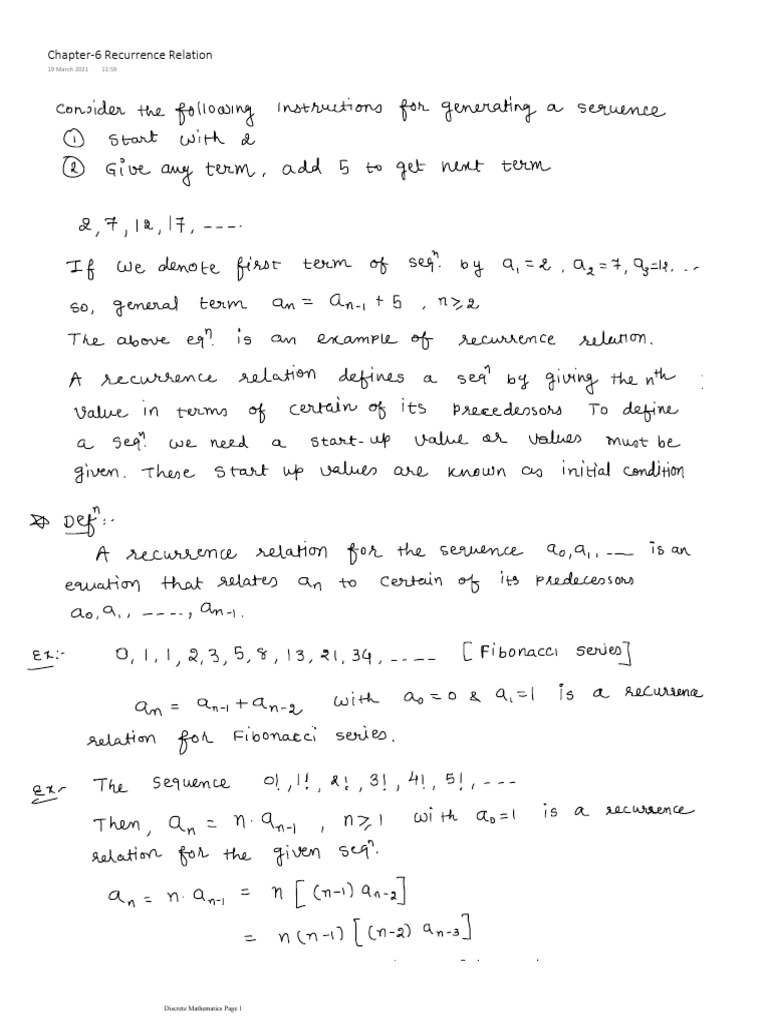 Chapter-6 Recurrence Relation
19 March 2021 11:59
Consider the following instructions for generating a sequence
① Start with 2
② Give any term, add 5 to get next term
2, 7, 12, 17, ----.
If we denote first term of seqⁿ. by a₁ = 2, a₂ = 7, a₃=12, ...
so, general term aₙ = aₙ₋₁ + 5 , n ≥ 2
The above eqⁿ. is an example of recurrence relation.
A recurrence relation defines a seqⁿ by giving the nᵗʰ
value in terms of certain of its precedessors To define
a seqⁿ. we need a start-up value or values must be
given. These start up values are known as initial condition
Defⁿ:-
A recurrence relation for the sequence a₀, a₁, --- is an
equation that relates aₙ to certain of its predecessors
a₀, a₁, ----., aₙ₋₁.
Ex:- 0, 1, 1, 2, 3, 5, 8, 13, 21, 34, ..--- [Fibonacci series]
aₙ = aₙ₋₁ + aₙ₋₂ with a₀ = 0 & a₁ = 1 is a recurrence
relation for Fibonacci series.
Ex:- The sequence 0!, 1!, 2!, 3!, 4!, 5!, ---
Then, aₙ = n · aₙ₋₁ , n ≥ 1 with a₀ = 1 is a recurrence
relation for the given seqⁿ.
aₙ = n · aₙ₋₁ = n [ (n-1) aₙ₋₂ ]
= n (n-1) [ (n-2) aₙ₋₃ ]
Discrete Mathematics Page 1